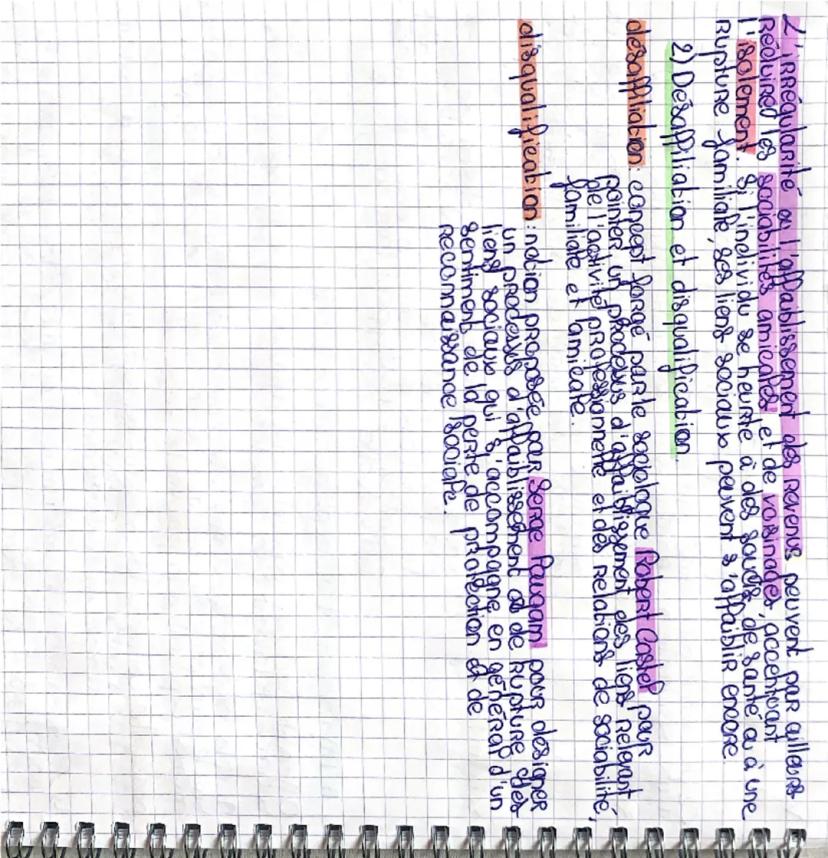 L'irrégularité ou l'affaiblissement des revenus peuvent par ailleurs
réduire les sociabilités amicales et de voisinages, accentuant
l'isolement. Si l'individu se heurte à des soucis de santé ou à une
rupture familiale, ses liens sociaux peuvent s'affaiblir encore
2) Désaffiliation et disqualification.
désaffiliation: concept forgé par le sociologue Robert Castel pour
pointer un processus d'affaiblissement des liens relevant
de l'activité professionnelle et des relations de sociabilité,
familiale et amicale.
disqualification: notion proposée par Serge Paugam pour désigner
un processus d'affaiblissement ou de rupture des
liens sociaux qui s'accompagne en général d'un
sentiment de la perte de protection et de
reconnaissance sociale.